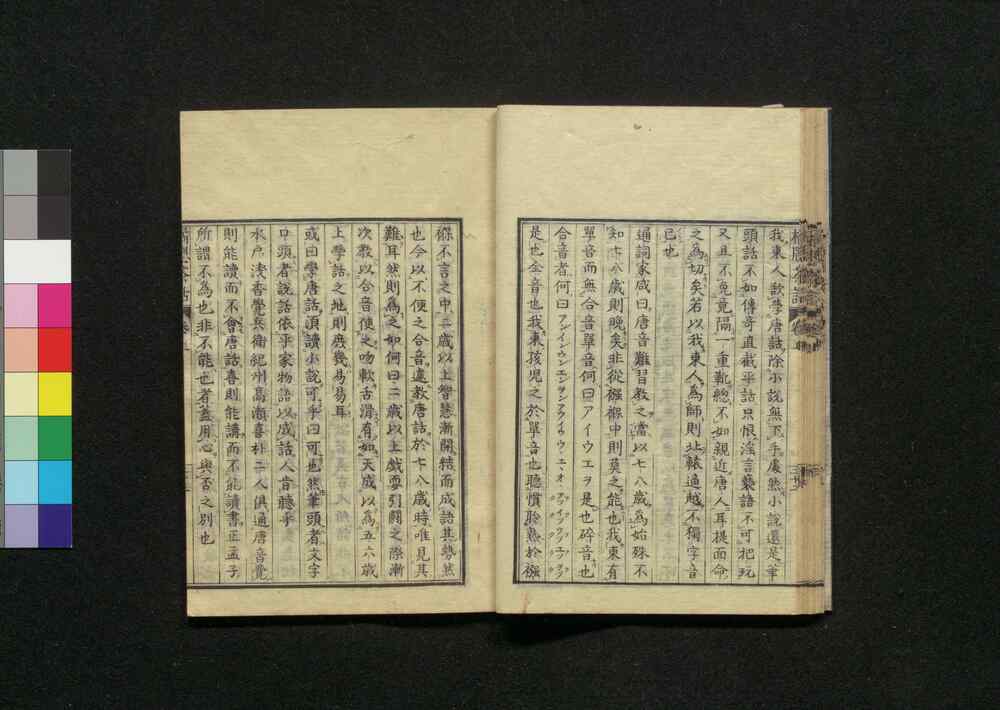 我東人欲學唐話除小說無下手處然小說還是筆
頭話不如傳奇直截平話只恨淫言褻語不可把玩
又且不免竟隔一重靴總不如親近唐人耳提面命
之為切矣若以我東人為師則北轅適越不獨字音
已也
通詞家咸曰唐音難習教之當以七八歲為始殊不
知七八歲則晚矣非從襁褓中則莫之能也我東有
單音而無合音單音何曰アイウエヲ是也碎音也
合音者何曰アンインウンエンヲン
是也全音也我東孩児之於單音也聽慣聆熟於襁
褓不言之中二歲以上智慧漸開結而成語其勢然
也今以不便之合音遽教唐話於七八歲時唯見其
難耳然則為之如何曰二歲以上戲耍引鬭之際漸
次教以合音使之吻軟舌滑有如天成以為五六歲
上學話之地則庶幾易易耳
或曰學唐話須讀小說可乎曰可也然筆頭者文字
口頭者說話依平家物語以成話人肯聽乎
水戶淺香覺兵衛紀州高瀨喜朴二人俱通唐音覺
則能讀而不會唐話喜則能講而不能讀書正孟子
所謂不為也非不能也者蓋用心與否之別也